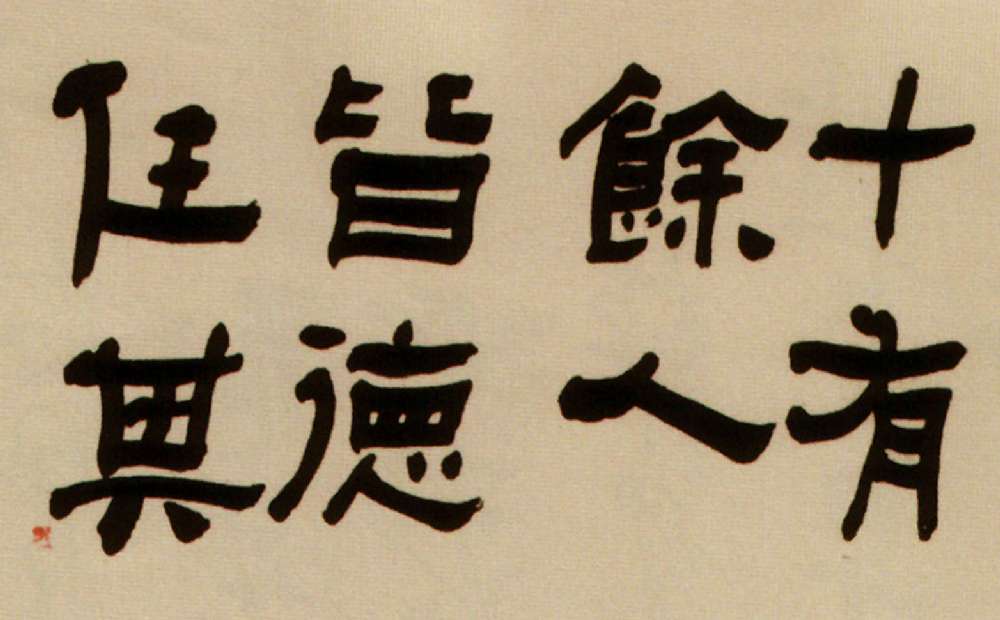 十有
餘人
皆德
任其